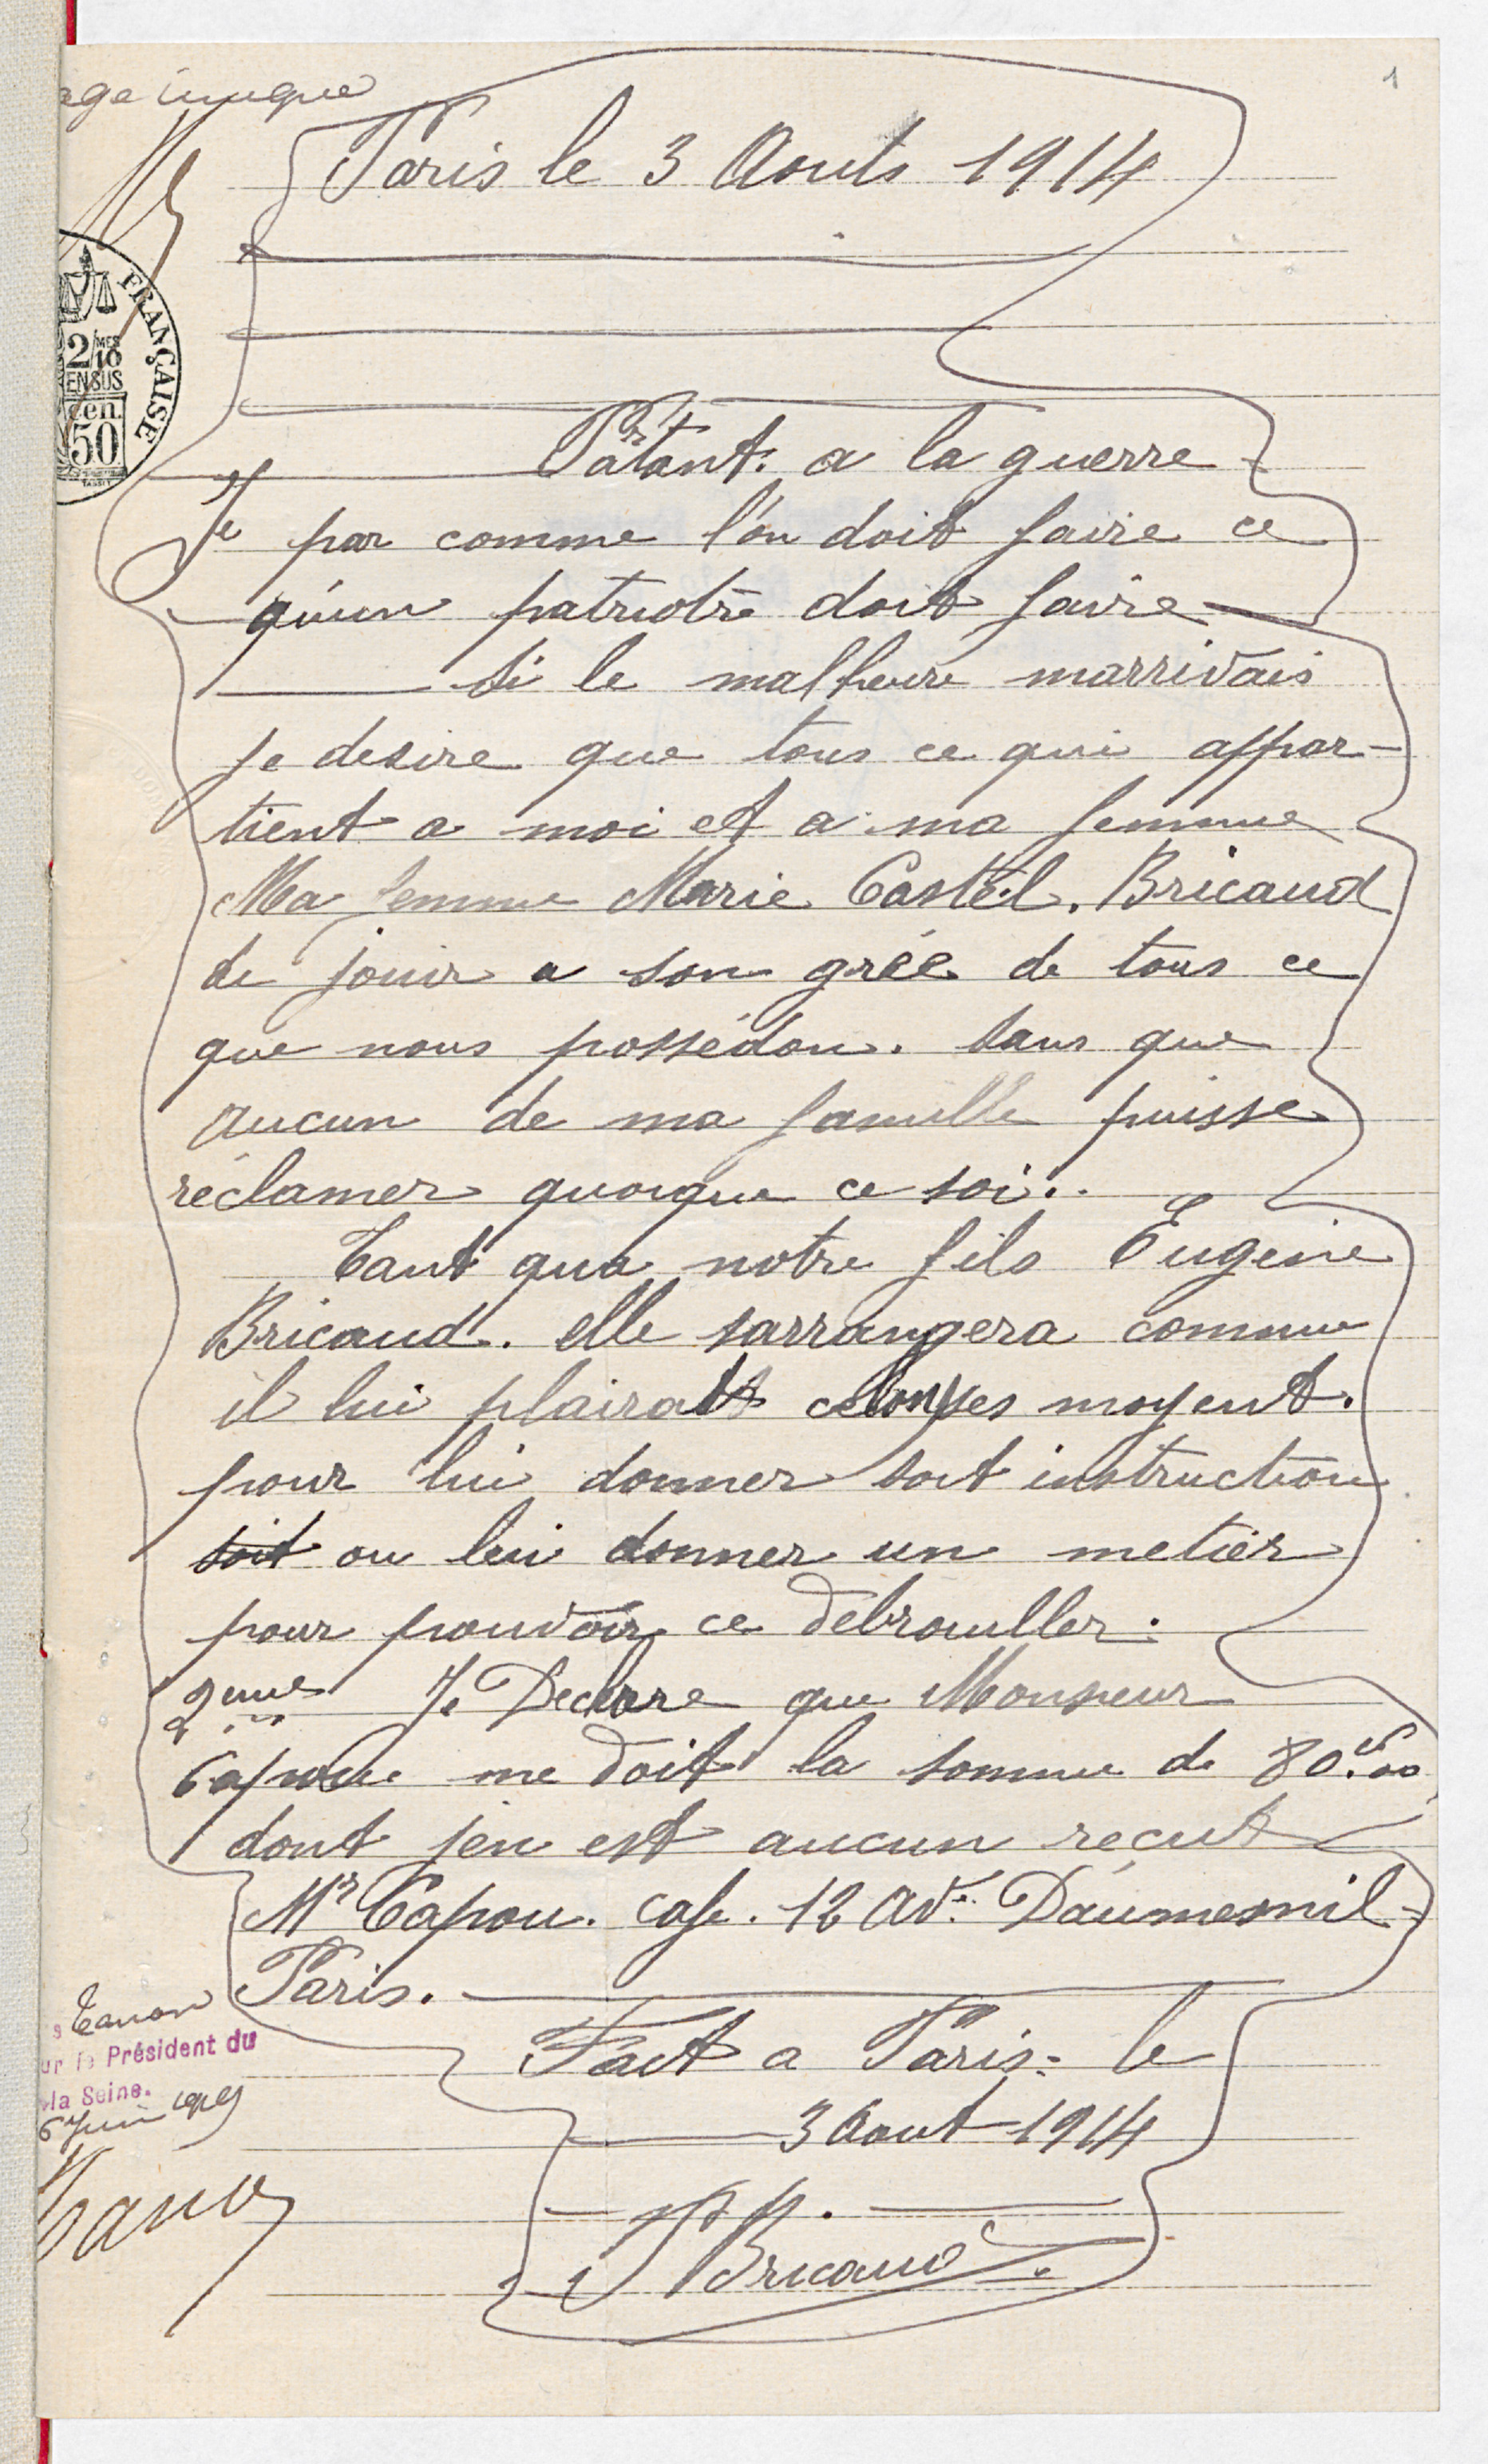 1
Paris le 3 Aouts 1914
FRANÇAISE
2/10
MES
EN SUS
cen.
50
Partant. a la guerre
Je par comme l'on doit faire ce
qu'un patriotre doit faire
Si le malheure marrivais
Je desire que tous ce qui appar-
tient a moi et a ma femme
Ma femme Marie Castel. Bricaud
de jouir a son gréé de tous ce
que nous possédon. sans que
aucun de ma famille puisse
réclamer quoique ce soi..
Tant qua notre fils Eugene
Bricaud. elle sarrangera comme
il lui plairait celon ses moyent.
pour lui donner soit instruction
soit ou lui donner un metier
pour pouvoir ce débrouller.
2eme Je Declare que Monsieur
Capou me doit la somme de 80f.00
dont jen est aucun recut
Mr Capou. cafe. 12 Ave. Daumesnil
Paris.
Fait a Paris. le
3 Aout 1914
Bricaud
Président du
la Seine.